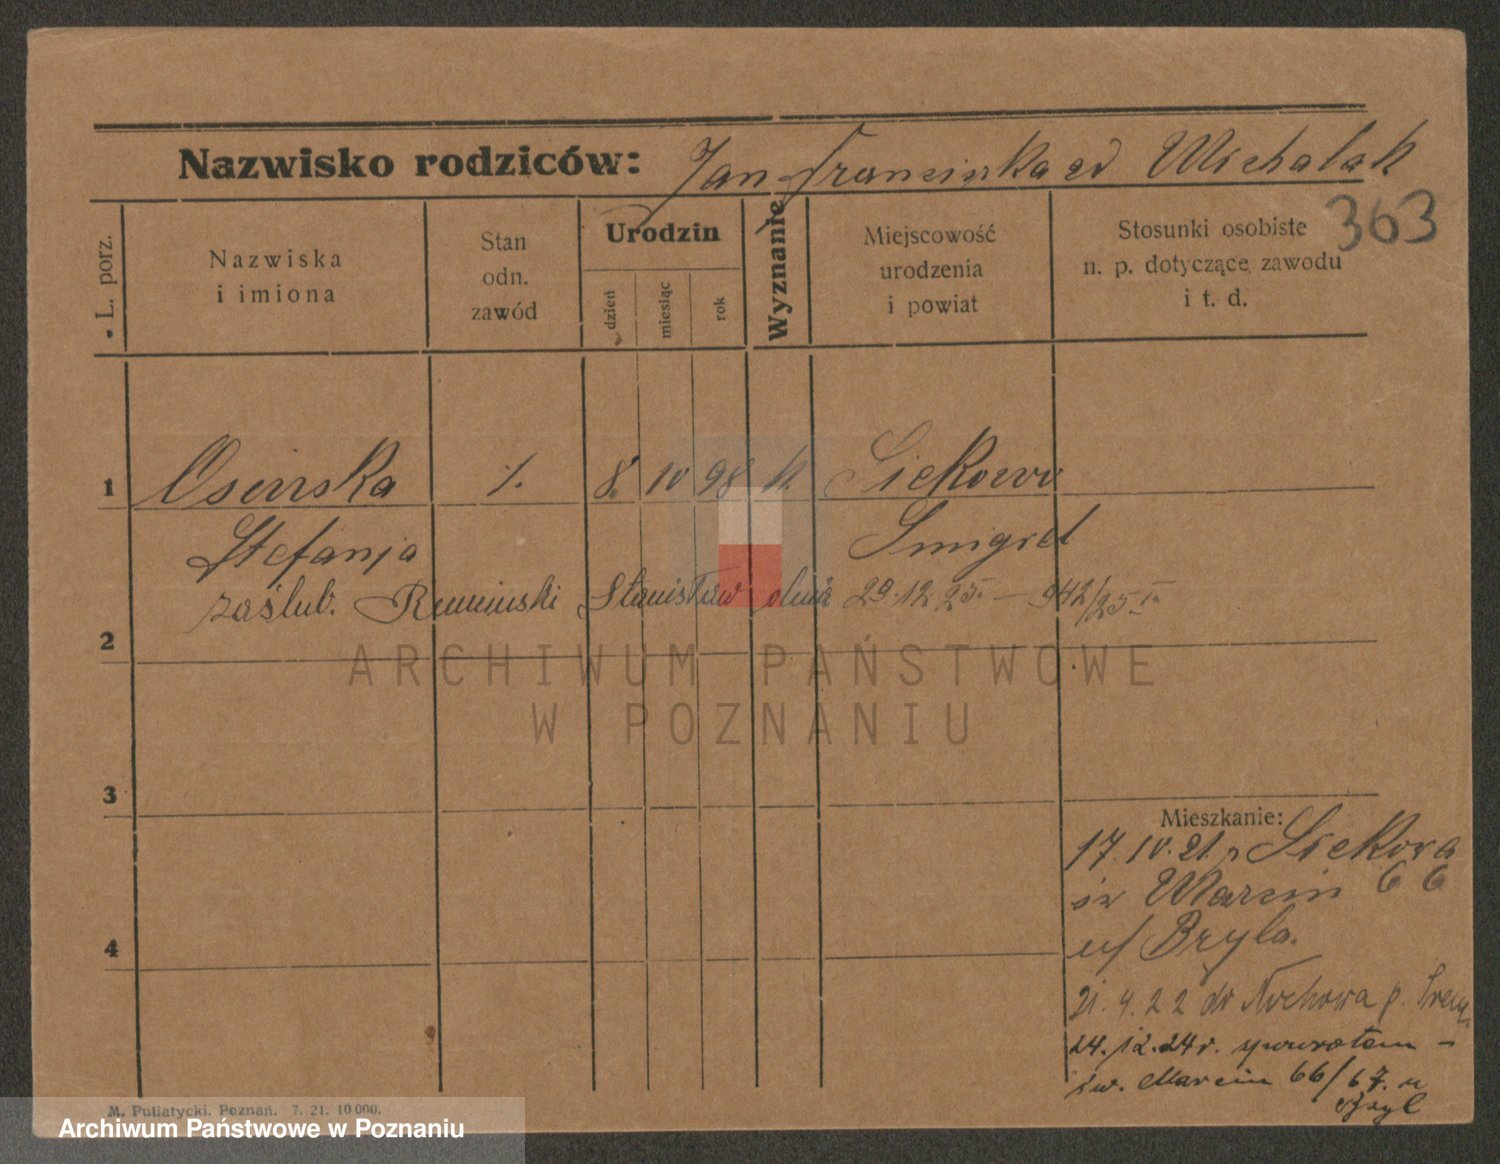 Nazwisko rodziców: Jan Franciszka zd Michalak
363
L. porz.
Nazwiska
i imiona
Stan
odn.
zawód
Urodzin
dzień
miesiąc
rok
Wyznanie
Miejscowość
urodzenia
i powiat
Stosunki osobiste
n. p. dotyczące zawodu
i t. d.
1 Osinska /. 8. 10 98 k Siekowo
Stefanja Smigiel
zaślub. Stanisław dnia 29.12.25. — 942/25
2
3
4
Mieszkanie:
17.10.21. z Siekowa
św Marcin 66
u/ Bryla.
21.4.22 do Nochowa p. Śrem.
24.12.24r. zpowrotem –
św. Marcin 66/67. u
Bryl
M. Putiatycki, Poznań. 7. 21. 10 000.
ARCHIWUM PAŃSTWOWE
W POZNANIU
Archiwum Państwowe w Poznaniu